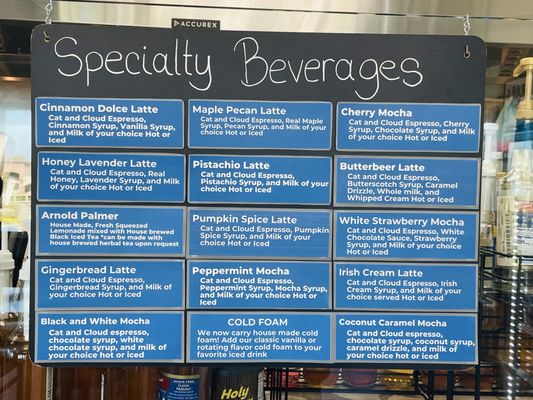 ACCUREX
Specialty Beverages
Cinnamon Dolce Latte
Cat and Cloud Espresso,
Cinnamon Syrup, Vanilla Syrup,
and Milk of your choice Hot or
Iced
Maple Pecan Latte
Cat and Cloud Espresso, Real Maple
Syrup, Pecan Syrup, and Milk of your
choice Hot or Iced
Cherry Mocha
Cat and Cloud Espresso, Cherry
Syrup, Chocolate Syrup, and Milk
of your choice Hot or Iced
Honey Lavender Latte
Cat and Cloud Espresso, Real
Honey, Lavender Syrup, and Milk
of your choice Hot or Iced
Pistachio Latte
Cat and Cloud Espresso,
Pistachio Syrup, and Milk of your
choice Hot or Iced
Butterbeer Latte
Cat and Cloud Espresso,
Butterscotch Syrup, Caramel
Drizzle, Whole milk, and
Whipped Cream Hot or Iced
Arnold Palmer
House Made, Fresh Squeezed
Lemonade mixed with House brewed
Black Iced Tea *can be made with
house brewed herbal tea upon request
Pumpkin Spice Latte
Cat and Cloud Espresso, Pumpkin
Spice Syrup, and Milk of your
choice Hot or Iced
White Strawberry Mocha
Cat and Cloud Espresso, White
Chocolate Sauce, Strawberry
Syrup, and Milk of your choice
Hot or Iced
Gingerbread Latte
Cat and Cloud Espresso,
Gingerbread Syrup, and Milk of
your choice Hot or Iced
Peppermint Mocha
Cat and Cloud Espresso,
Peppermint Syrup, Mocha Syrup,
and Milk of your choice Hot or Iced
Irish Cream Latte
Cat and Cloud Espresso, Irish
Cream Syrup, and Milk of your
choice served Hot or Iced
Black and White Mocha
Cat and Cloud espresso,
chocolate syrup, white
chocolate syrup, and milk of
your choice hot or iced
COLD FOAM
We now carry house made cold
foam! Add our classic vanilla or
rotating flavor cold foam to your
favorite iced drink
Coconut Caramel Mocha
Cat and Cloud espresso,
chocolate syrup, coconut syrup,
caramel drizzle, and milk of your
choice hot or iced
Holy